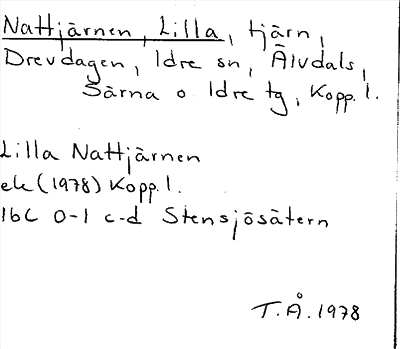 Nattjärnen, Lilla, tjärn,
Drevdagen, Idre sn, Älvdals,
Särna o Idre tg, Kopp. l.
Lilla Nattjärnen
ek (1978) Kopp. l.
16C 0-1 c-d Stensjösätern
T.Å. 1978